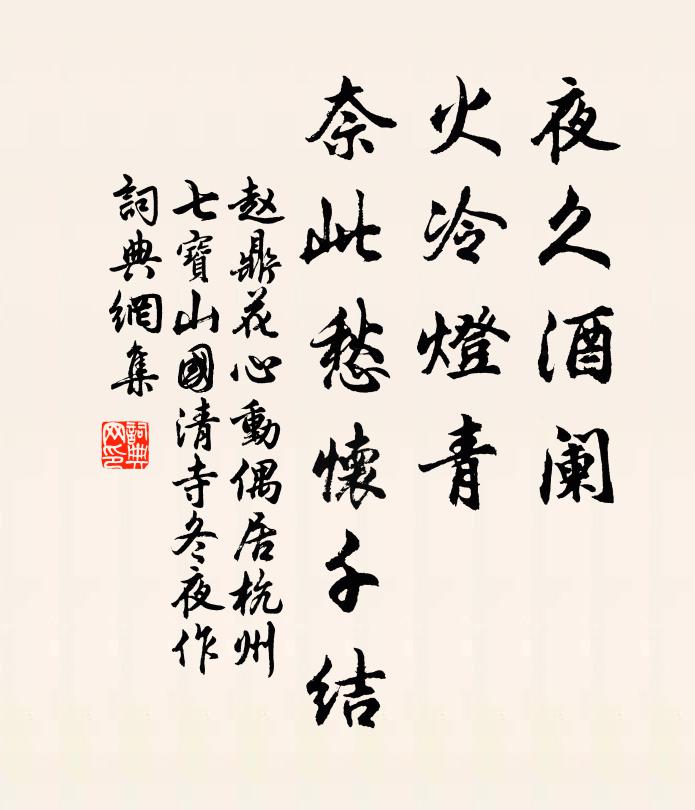 夜久酒阑
火冷燈青
奈此愁懷千结
赵鼎花心動偶居杭州
七寶山國清寺冬夜作
詞典網集
詞典
网印